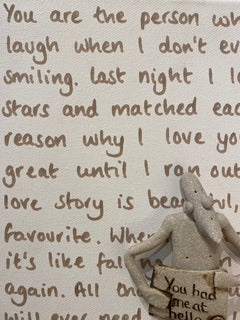 You are the person wh
laugh when I don't ev
smiling. last night I l
stars and matched eac
reason why I love yo
great until I ran out
love story is beautiful,
favourite. When
it's like fal
again. All th
will ever need
You had
me at
hello